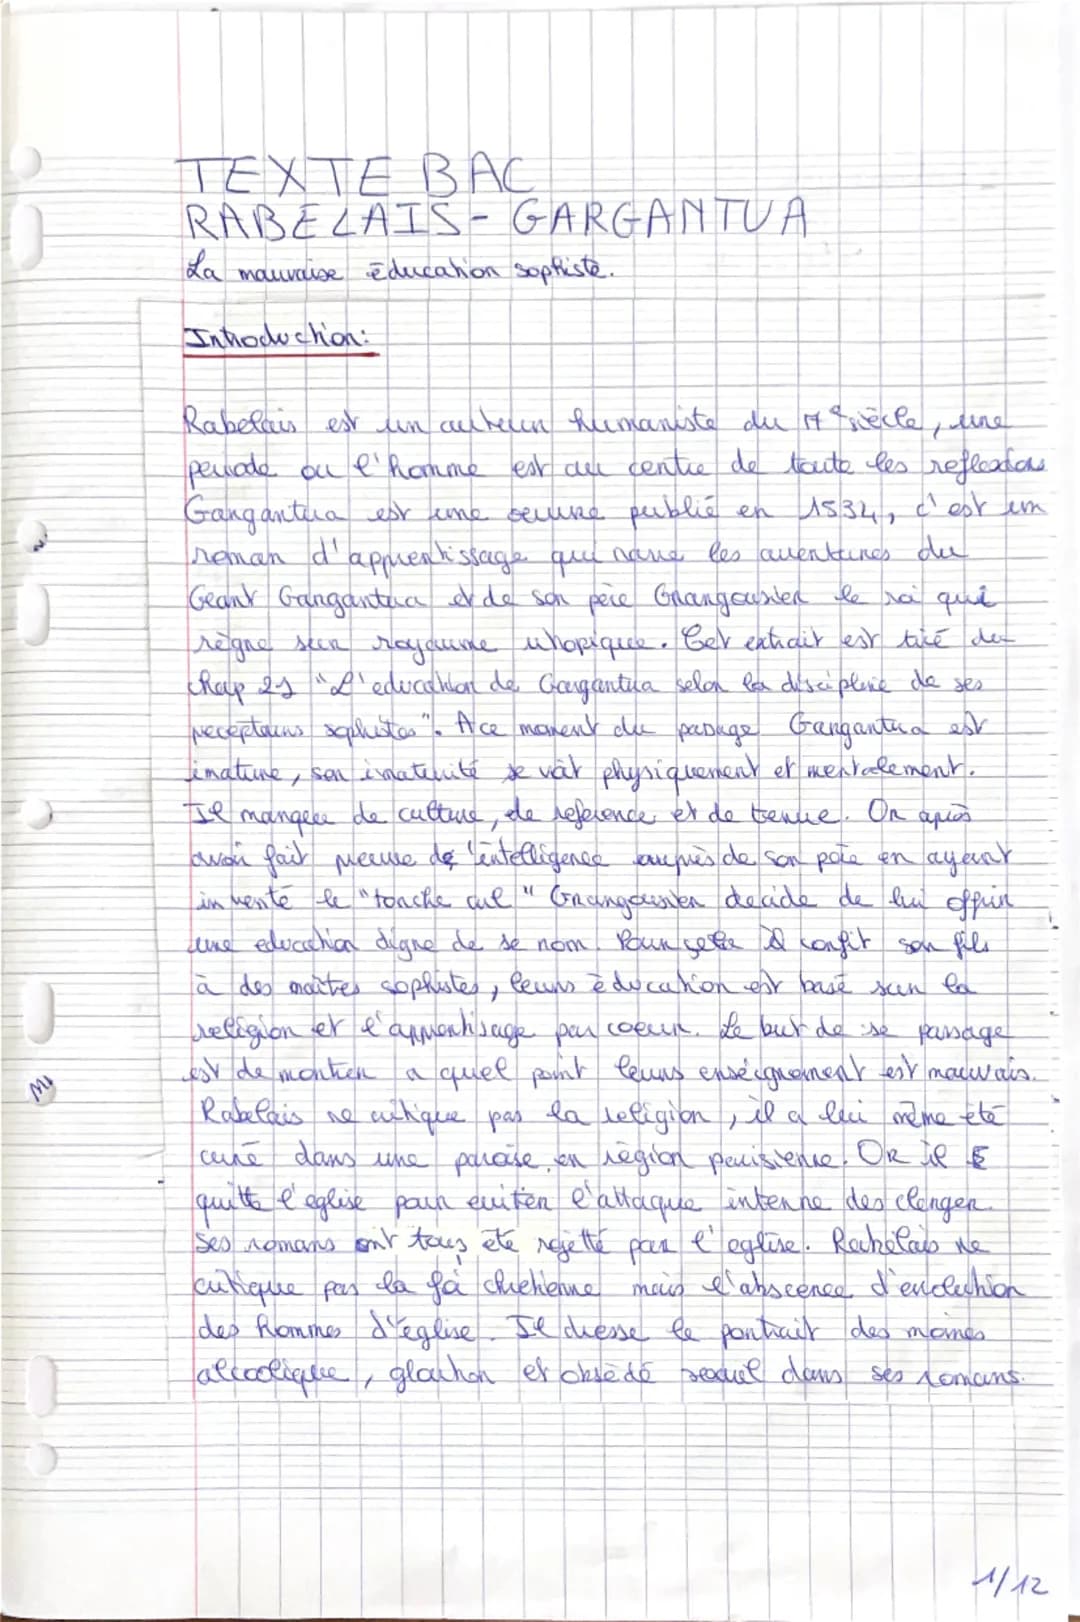 TEXTE BAC
RABELAIS - GARGANTUA
La mauvaise éducation sophiste.
Introduction:
Rabelais est un auteur humaniste du 17e siècle, une
periode ou l'homme est au centre de toute les reflexions
Gargantua est une oeuvre publié en 1534, c'est un
roman d'apprentissage qui narre les aventures du
Geant Gargantua et de son père Grangousier le roi qui
règne sur royaume uhopique. Cet extrait est tiré du
chap 21 "L'education de Gargantua selon la discipline de ses
precepteurs sophistes". A ce moment du passage Gargantua est
imature, son imaturité se voit physiquement et mentalement.
Il manque de culture, de reference et de tenue. Or après
avoir fait preuve de l'intelligence auprès de son père en ayant
inventé le "torche cul" Grangousier decide de lui offrir
une education digne de se nom. Pour cela il confit son fils
à des maîtres sophistes, leurs éducation est basé sur la
religion et l'apprentisage par coeur. Le but de se passage
est de montrer a quel point leurs enseignement est mauvais.
Rabelais ne critique pas la religion, il a lui même été
curé dans une paroise en région parisienne. Or il
quitte l'eglise pour eviter l'attaque interne des clerger.
Ses romans ont tous été rejetté par l'eglise. Rabelais ne
critique pas la foi chretienne mais l'abscence d'evolution
des hommes d'église. Il dresse le portrait des moines
alcoolique, glouton et obsédé sexuel dans ses romans.
M
1/12